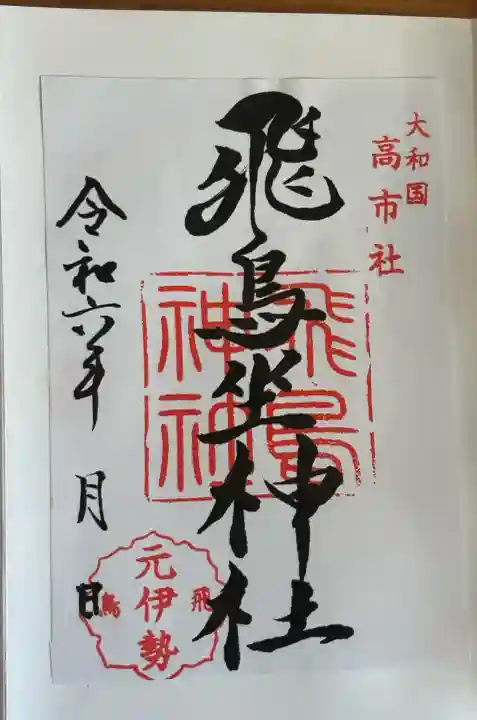 大和国
高市社
飛鳥坐神社
飛鳥
神神
令和六年 月 日
元伊勢
飛鳥